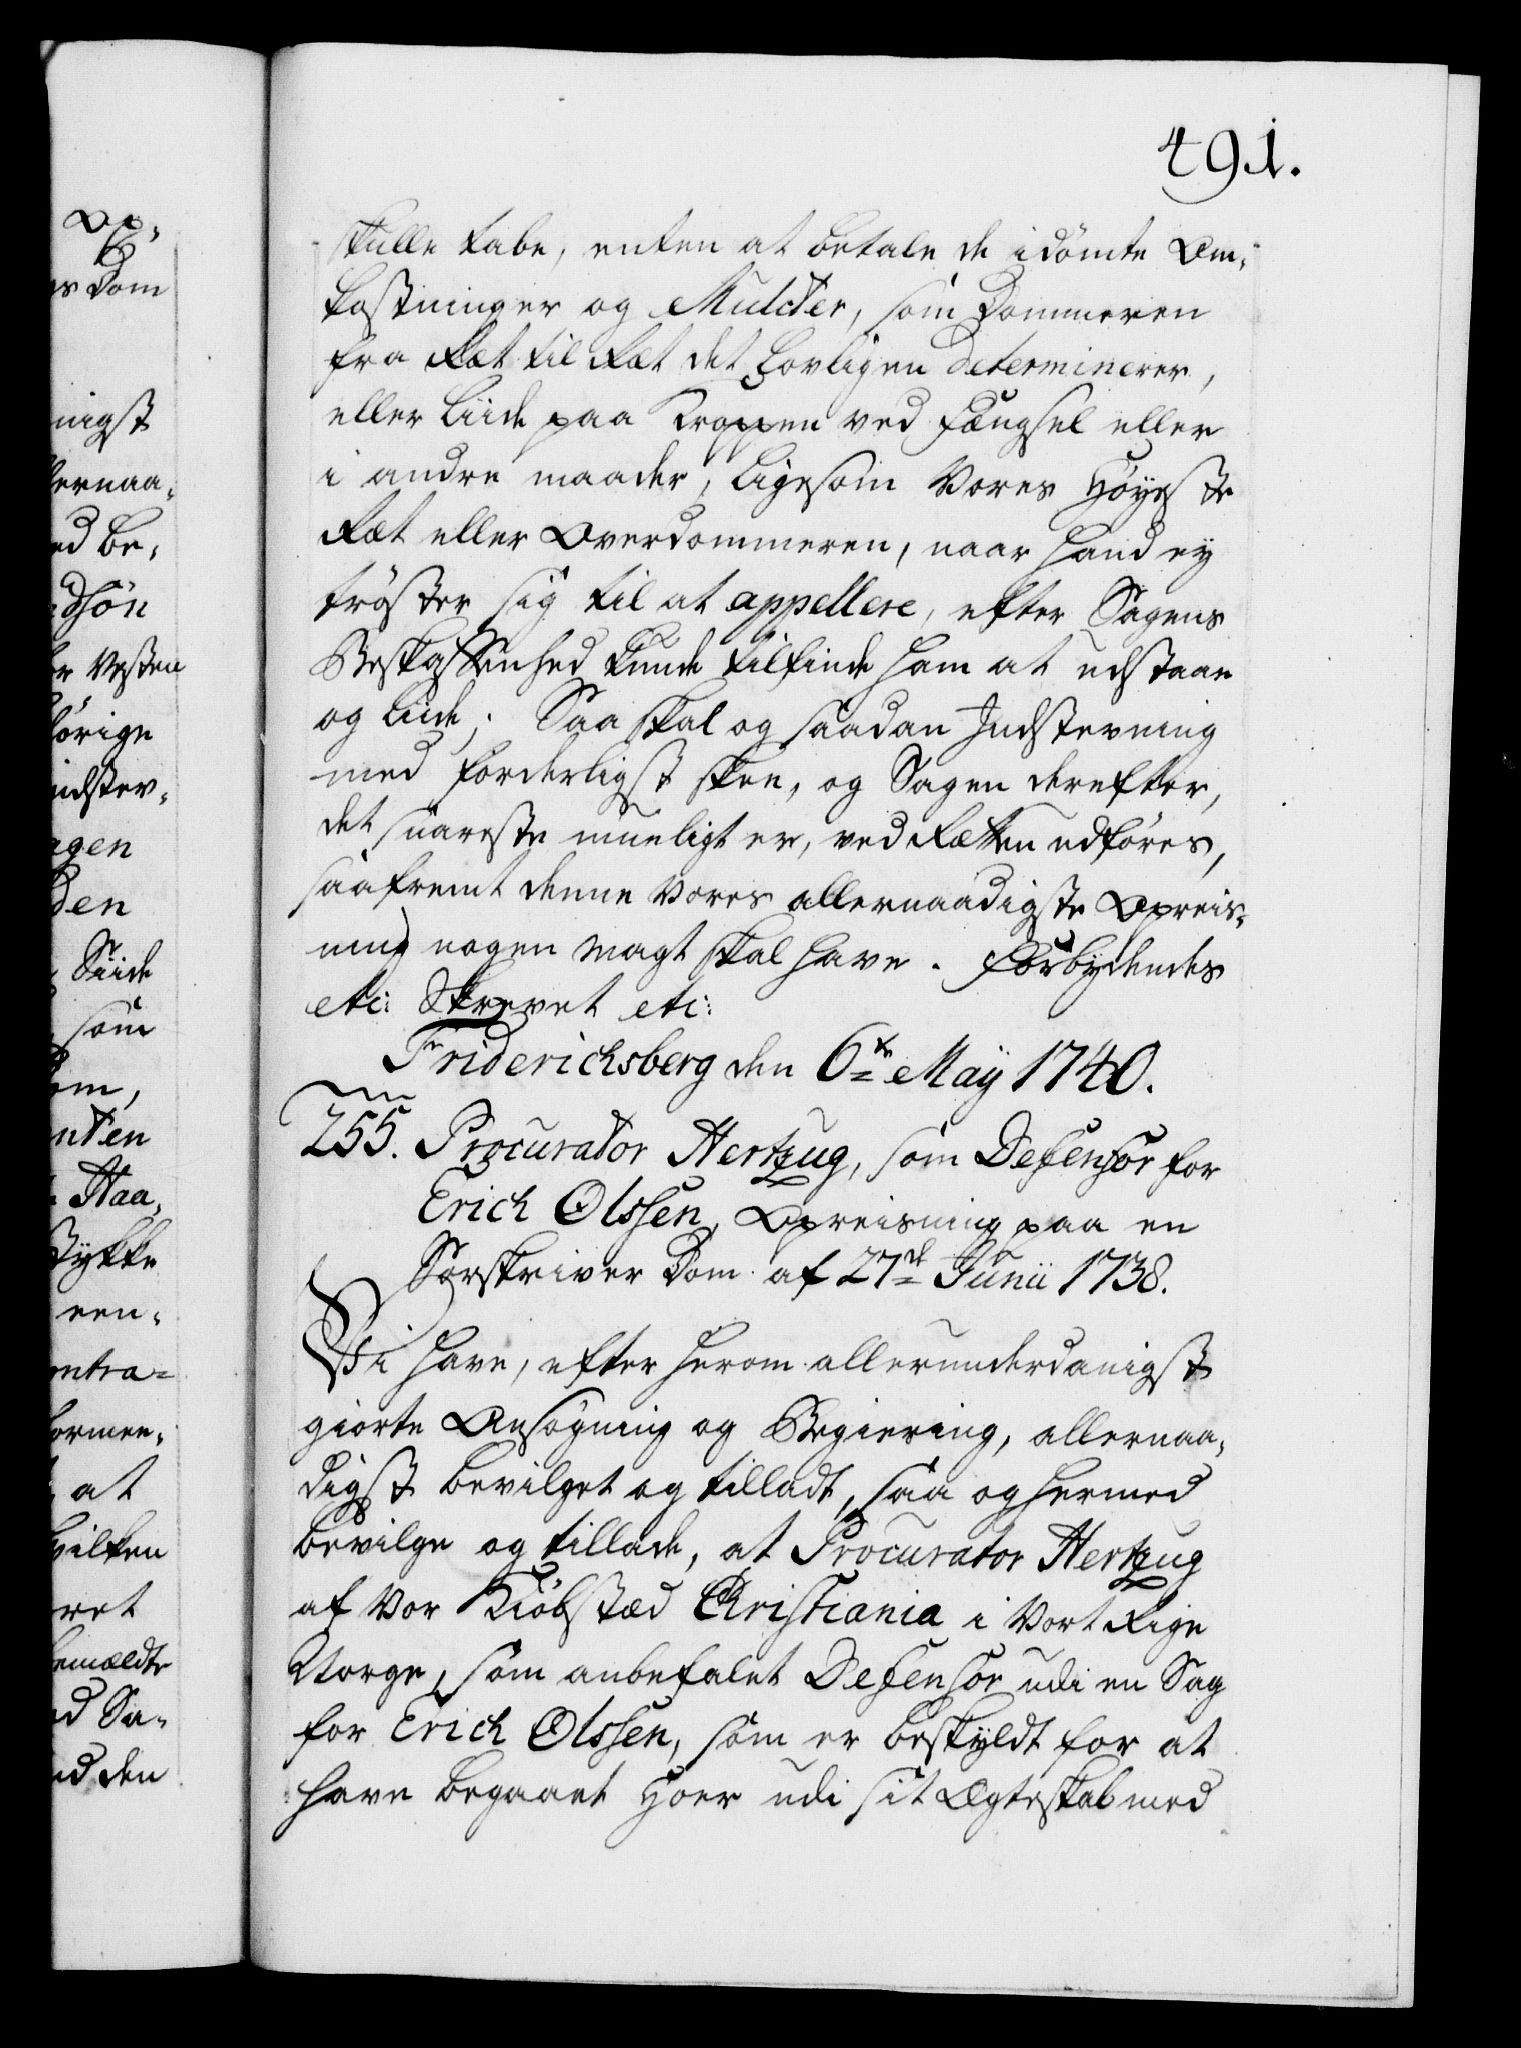 491.
skulle tabe, enten at betale de idömte Om-
kostninger og Mulcter, som Dommeren
fra Ret til Ret det lovligen determinerer,
eller liide paa Kroppen ved Fængsel eller
i andre maader, ligesom Vores Höyeste
Ret eller Overdommeren, naar hand ey
tröster sig til at appellere, efter Sagens
Beskaffenhed kunde tilfinde ham at udstaae
og liide; Saa skal og saadan Indstevning
med forderligst skee, og Sagen derefter,
det snareste mueligt er, ved Retten udföres,
saafremt denne Vores allernaadigste Opreis-
ning nogen Magt skal have. Forbydendes
etc: Skrevet etc:
Friderichsberg den 6te Maÿ 1740.
255. Procurator Hertzug, som Defensor for
Erich Olssen, Opreisning paa en
Sorskriver Dom af 27de Junii 1738.
Vi have, efter herom allerunderdanigst
giorte Ansögning og Begiering, allernaa-
digst bevilget og tilladt, saa og hermed
bevilge og tillade, at Procurator Hertzug
af Vor Kiöbsted Christiania i Vort Rige
Norge, som anbefalet Defensor udi en Sag
for Erich Olssen, som er beskyldt for at
have begaaet Hoer udi sit Ægteskab med